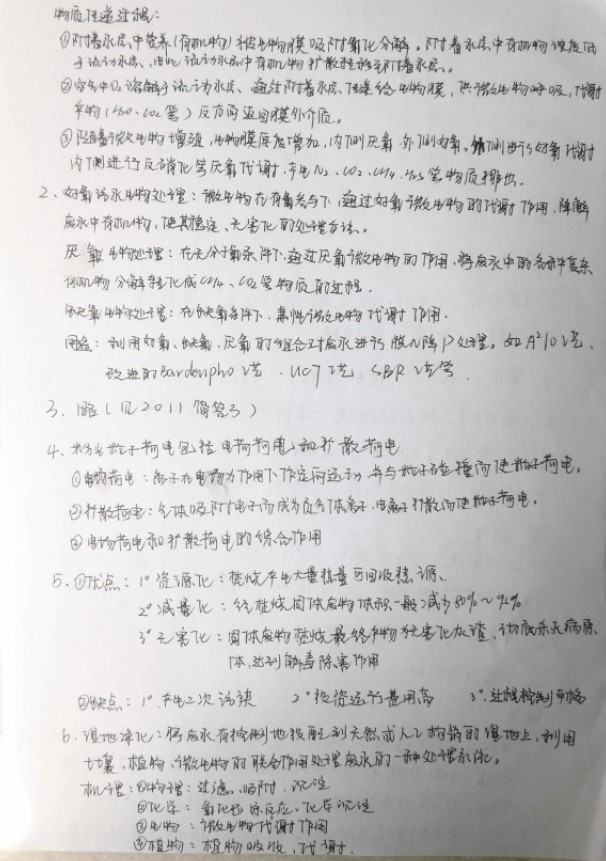 物质传递过程：
①附着水层中营养(有机物)被生物膜吸附氧化分解。附着水层中有机物浓度低
于流动水层，由此流动水层中有机物扩散转移至附着水层。
②空气中O₂溶解于流动水层，通过附着水层传递给生物膜，供微生物呼吸，代谢
产物(H₂O、CO₂等)反方向返回膜外介质。
③随着微生物增殖，生物膜厚度增加，内侧厌氧，外侧好氧。外侧进行好氧代谢
内侧进行反硝化等厌氧代谢，产生N₂、CO₂、CH₄、H₂S等物质排出。
2、好氧活水生物处理：微生物在有氧参与下，通过好氧微生物的代谢作用，降解
废水中有机物，使其稳定、无害化的处理方法。
厌氧生物处理：在无分子氧条件下，通过厌氧微生物的作用，将废水中的各种复杂
有机物分解转化成CH₄、CO₂等物质的过程。
缺氧生物处理：在缺氧条件下，兼性微生物代谢作用。
用途：利用好氧、缺氧、厌氧的组合对废水进行脱N除P处理。如A²/O工艺、
改进的Bardenpho工艺、UCT工艺、SBR工艺等
3、略(见2011简答3)
4、粉尘粒子荷电包括电荷荷电和扩散荷电
①电场荷电：离子在电场力作用下作定向运动并与粒子碰撞而使粒子荷电。
②扩散荷电：气体吸附电子而成为负气体离子，由离子扩散而使粒子荷电。
③电场荷电和扩散荷电的综合作用
5、①优点：1°资源化：焚烧产生大量热量可回收热源、
2°减量化：经焚烧固体废物体积一般减少80%～90%
3°无害化：固体废物焚烧最终产物为无害化灰渣，彻底杀灭病原
体，达到解毒除害作用
②缺点：1°产生二次污染 2°投资运行费用高 3°过程控制严格
6、湿地净化：将废水有控制地投配到天然或人工构筑的湿地上，利用
土壤、植物、微生物的联合作用处理废水的一种处理系统。
机理：①物理：过滤、吸附、沉淀
②化学：氧化还原反应、化学沉淀
③生物：微生物代谢作用
④植物：植物吸收，代谢.